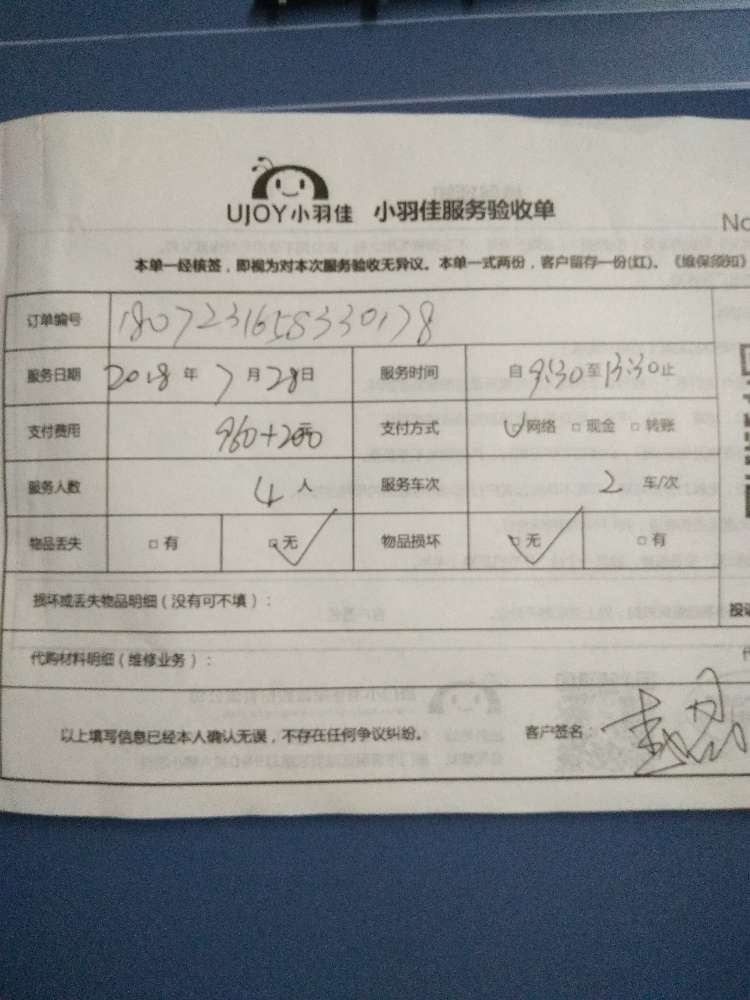 UJOY小羽佳 小羽佳服务验收单
No
本单一经核签，即视为对本次服务验收无异议。本单一式两份，客户留存一份(红)。《维保须知》
订单编号 1807231658330178
服务日期 2018年7月28日 服务时间 自9:30至13:30止
支付费用 960+200元 支付方式 ☑网络 □现金 □转账
服务人数 4人 服务车次 2车/次
物品丢失 □有 ☑无 物品损坏 ☑无 □有
损坏或丢失物品明细(没有可不填)：
代购材料明细(维修业务)：
以上填写信息已经本人确认无误，不存在任何争议纠纷。 客户签名：